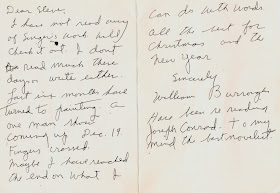 Dear Steve,
I have not read any
of Sugar's work will
check it out I don't
read much these
days or write either.
Last six months have
turned to painting a
one man show
coming up Dec. 19
Fingers crossed
Maybe I have reached
the end on what I
can do with words
all the best for
Christmas and the
New Year
Sincerely
William Burroughs
Have been re reading
Joseph Conrad. to my
mind the best novelist